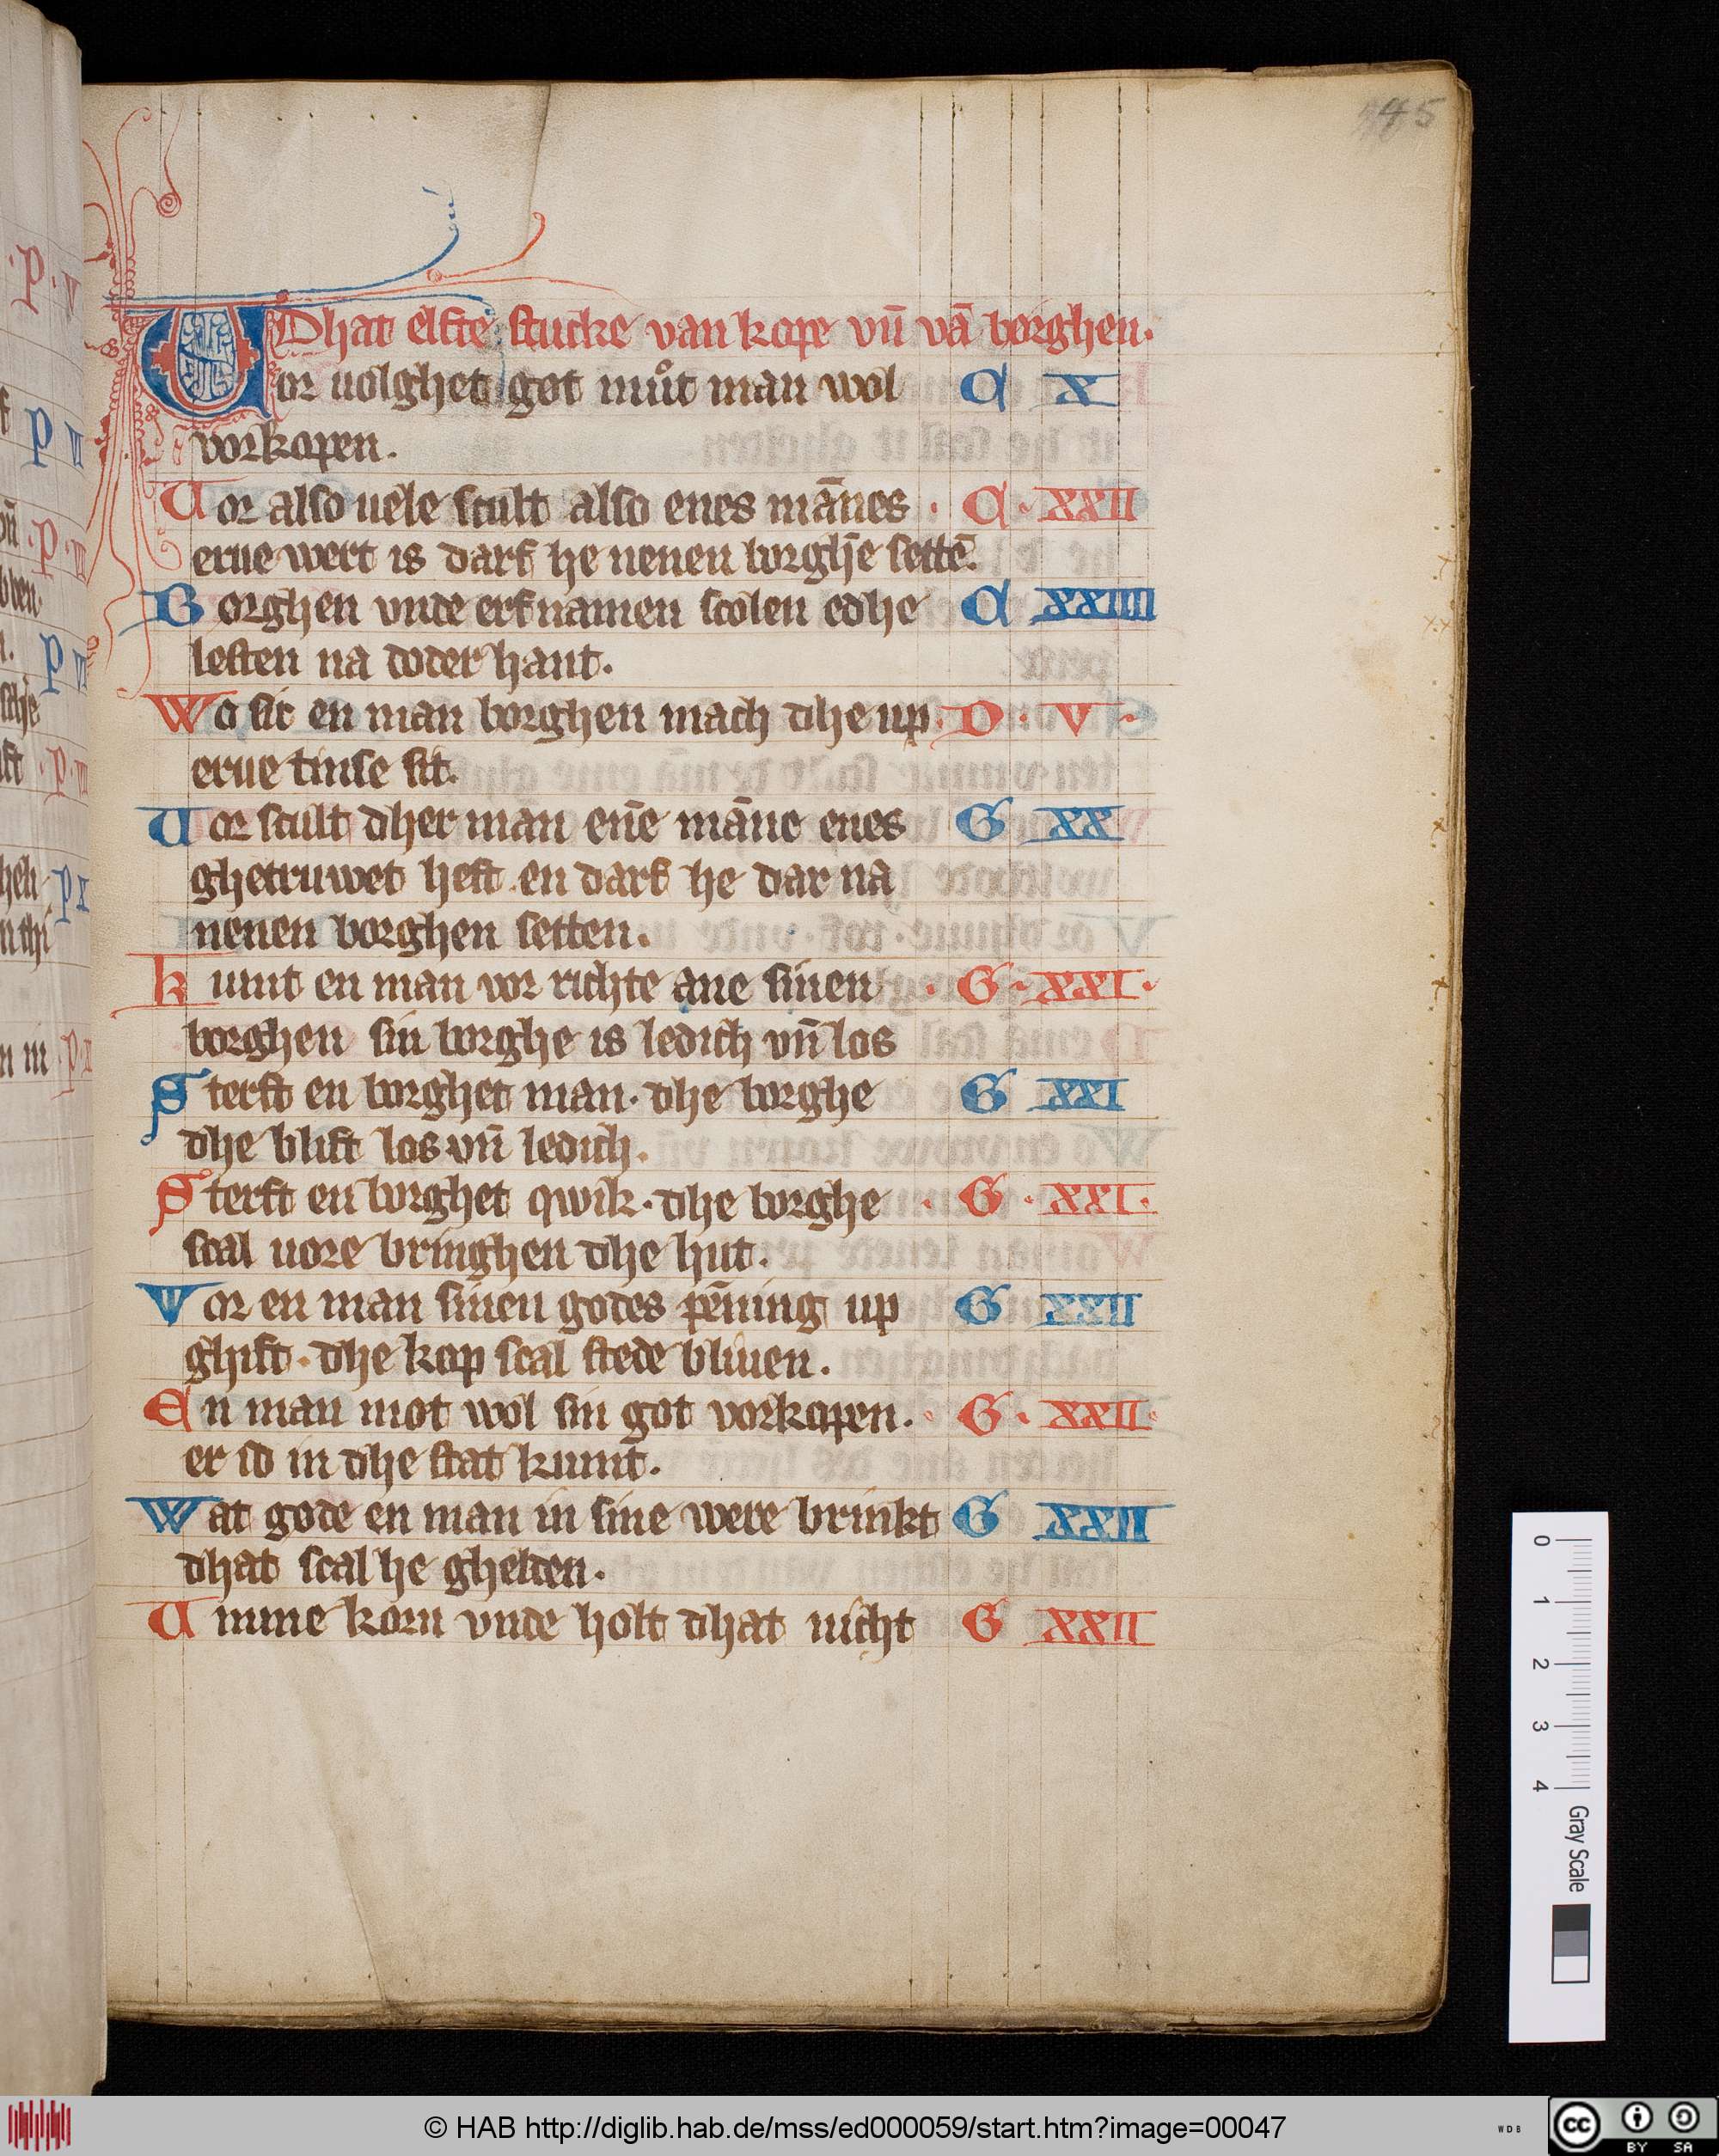 45
Dhat elfte stucke van kope vn̄ vā borghen.
Vor uolghet got můt man wol C X
vorkopen.
Vor also uele scult also enes mānes · C · XXII
erue wert is darf he nenen borghē settē.
Borghen vnde erfnamen scolen edhe C XXIIII
lesten na doder hant.
Wo sic en man borghen mach dhe up · D · V ·
erue tinse sit.
Vor scult dher man enē māne enes G XX
ghetruwet heft en darf he dar na
nenen borghen setten.
kumt en man vor richte ane sinen · G · XXI ·
borghen sin borghe is ledich vn̄ los
Sterft en borghet man · dhe borghe G XXI
dhe blift los vn̄ ledich.
Sterft en borghet qwik · dhe borghe · G · XXI ·
scal uore bringhen dhe hut.
Vor en man sinen godes pēning up G XXII
ghift · dhe kop scal stede bliuen.
En man mot wol sin got vorkopen. · G · XXII ·
er id in dhe stat kumt.
Wat gode en man in sine were brinkt G XXII
dhat scal he ghelden.
Vmme korn vnde holt dhat nicht G XXII
P · V
P VI
P · VI
P VI
P · VI
P X
0 1 2 3 4 Gray Scale
© HAB http://diglib.hab.de/mss/ed000059/start.htm?image=00047
WDB
cc BY SA